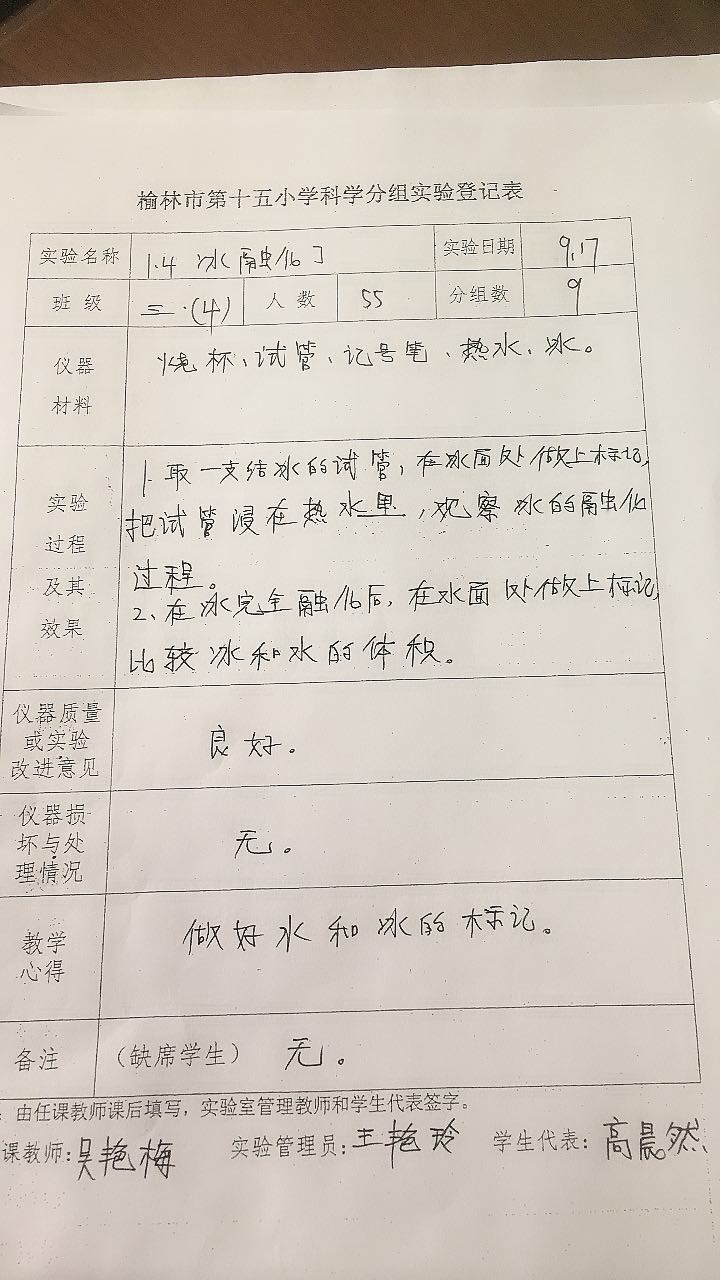 榆林市第十五小学科学分组实验登记表
实验名称 1.4 冰融化了 实验日期 9.17
班 级 三.(4) 人 数 55 分组数 9
仪器
材料
烧杯、试管、记号笔、热水、冰。
实验
过程
及其
效果
1. 取一支结冰的试管，在冰面处做上标记，
把试管浸在热水里，观察冰的融化
过程。
2、在冰完全融化后，在水面处做上标记，
比较冰和水的体积。
仪器质量
或实验
改进意见
良好。
仪器损
坏与处
理情况
无。
教学
心得
做好水和冰的标记。
备注 （缺席学生） 无。
：由任课教师课后填写，实验室管理教师和学生代表签字。
课教师:吴艳梅 实验管理员:王艳玲 学生代表:高晨然